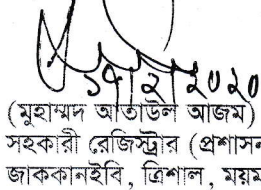 ১৭/২/২০২০
(মুহাম্মদ আতাউল আজম)
সহকারী রেজিস্ট্রার (প্রশাসন
জাককানইবি, ত্রিশাল, ময়ম